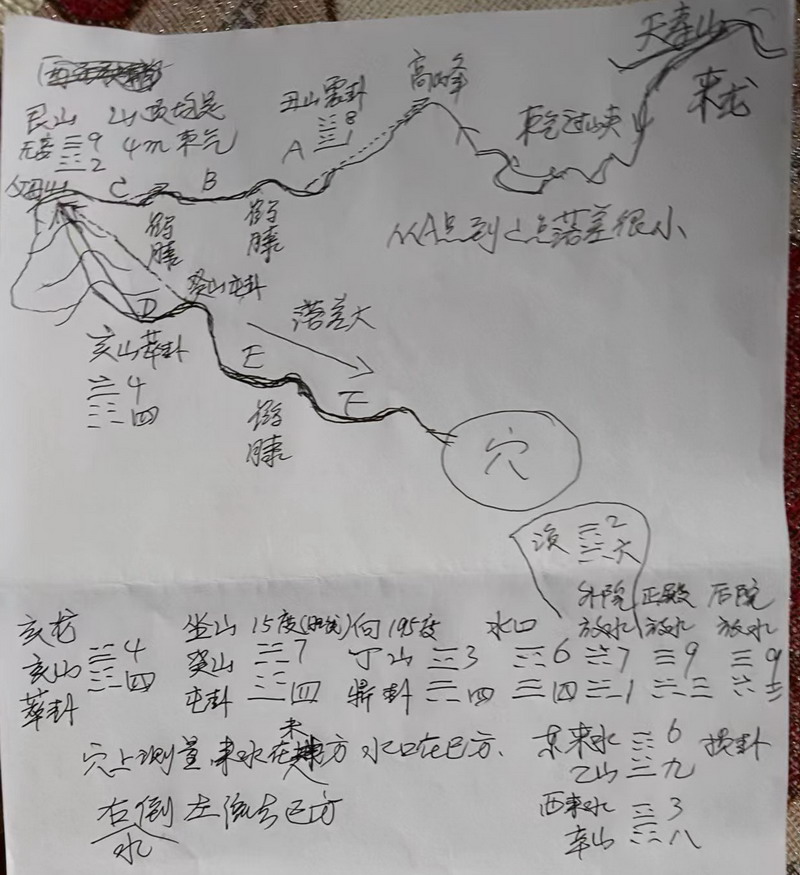 天寿山
来龙
高峰
丑山震卦
8
1
艮山
无妄 9
2
4m 来气
父母山
A
B
C
来气过山夹
从A点到C点落差很小
鹤膝
鹤膝
癸山屯卦
D
落差大
亥山萃卦
4
四
E
鹤膝
F
穴
涣 2
六
外院 正殿 后院
亥龙 坐山 15度 向195度 水口 放水 放水 放水
亥山 4 癸山 7 丁山 3 6 7 9 9
萃卦 四 屯卦 四 鼎卦 四 四 一 三
穴上测量,来水在未方 水口在巳方.
东来水 6 损卦
乙山 九
右倒左流去巳方
水
西来水 3
辛山 八